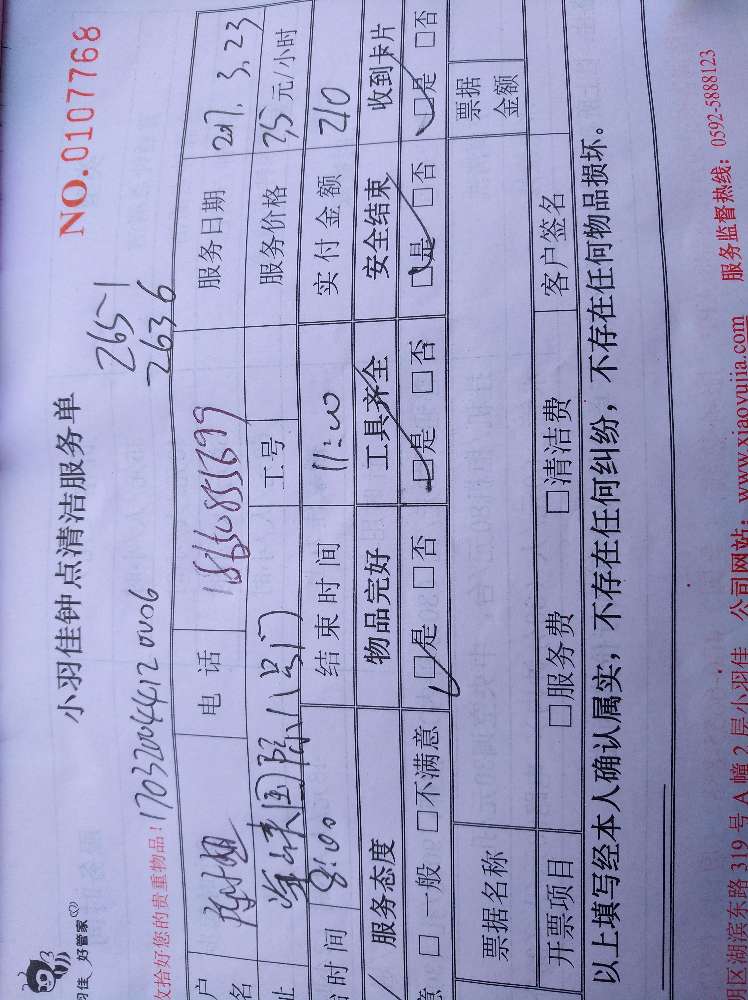 羽佳 好管家
小羽佳钟点清洁服务单
NO.0107768
收拾好您的贵重物品!
265-1
2636
户名 电话 服务日期 2017.3.23
址 工号 服务价格 35元/小时
始时间 8:00 结束时间 11:00 实付金额 210
服务态度 物品完好 工具齐全 安全结束 收到卡片
意 □一般 □不满意 □是 □否 □是 □否 □是 □否 □是 □否
票据名称 票据金额
开票项目 □服务费 □清洁费 客户签名
以上填写经本人确认属实,不存在任何纠纷,不存在任何物品损坏。
明区湖滨东路319号A幢2层小羽佳 公司网站:www.xiaoyujia.com 服务监督热线:0592-5888123